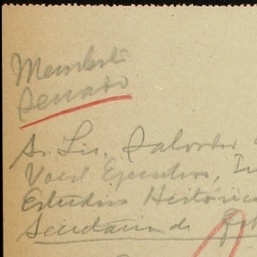 Membrete
Senado
Sr. Lic. Salvador
Vocal Ejecutivo, In
Estudios Históric
Secretaría de Gob